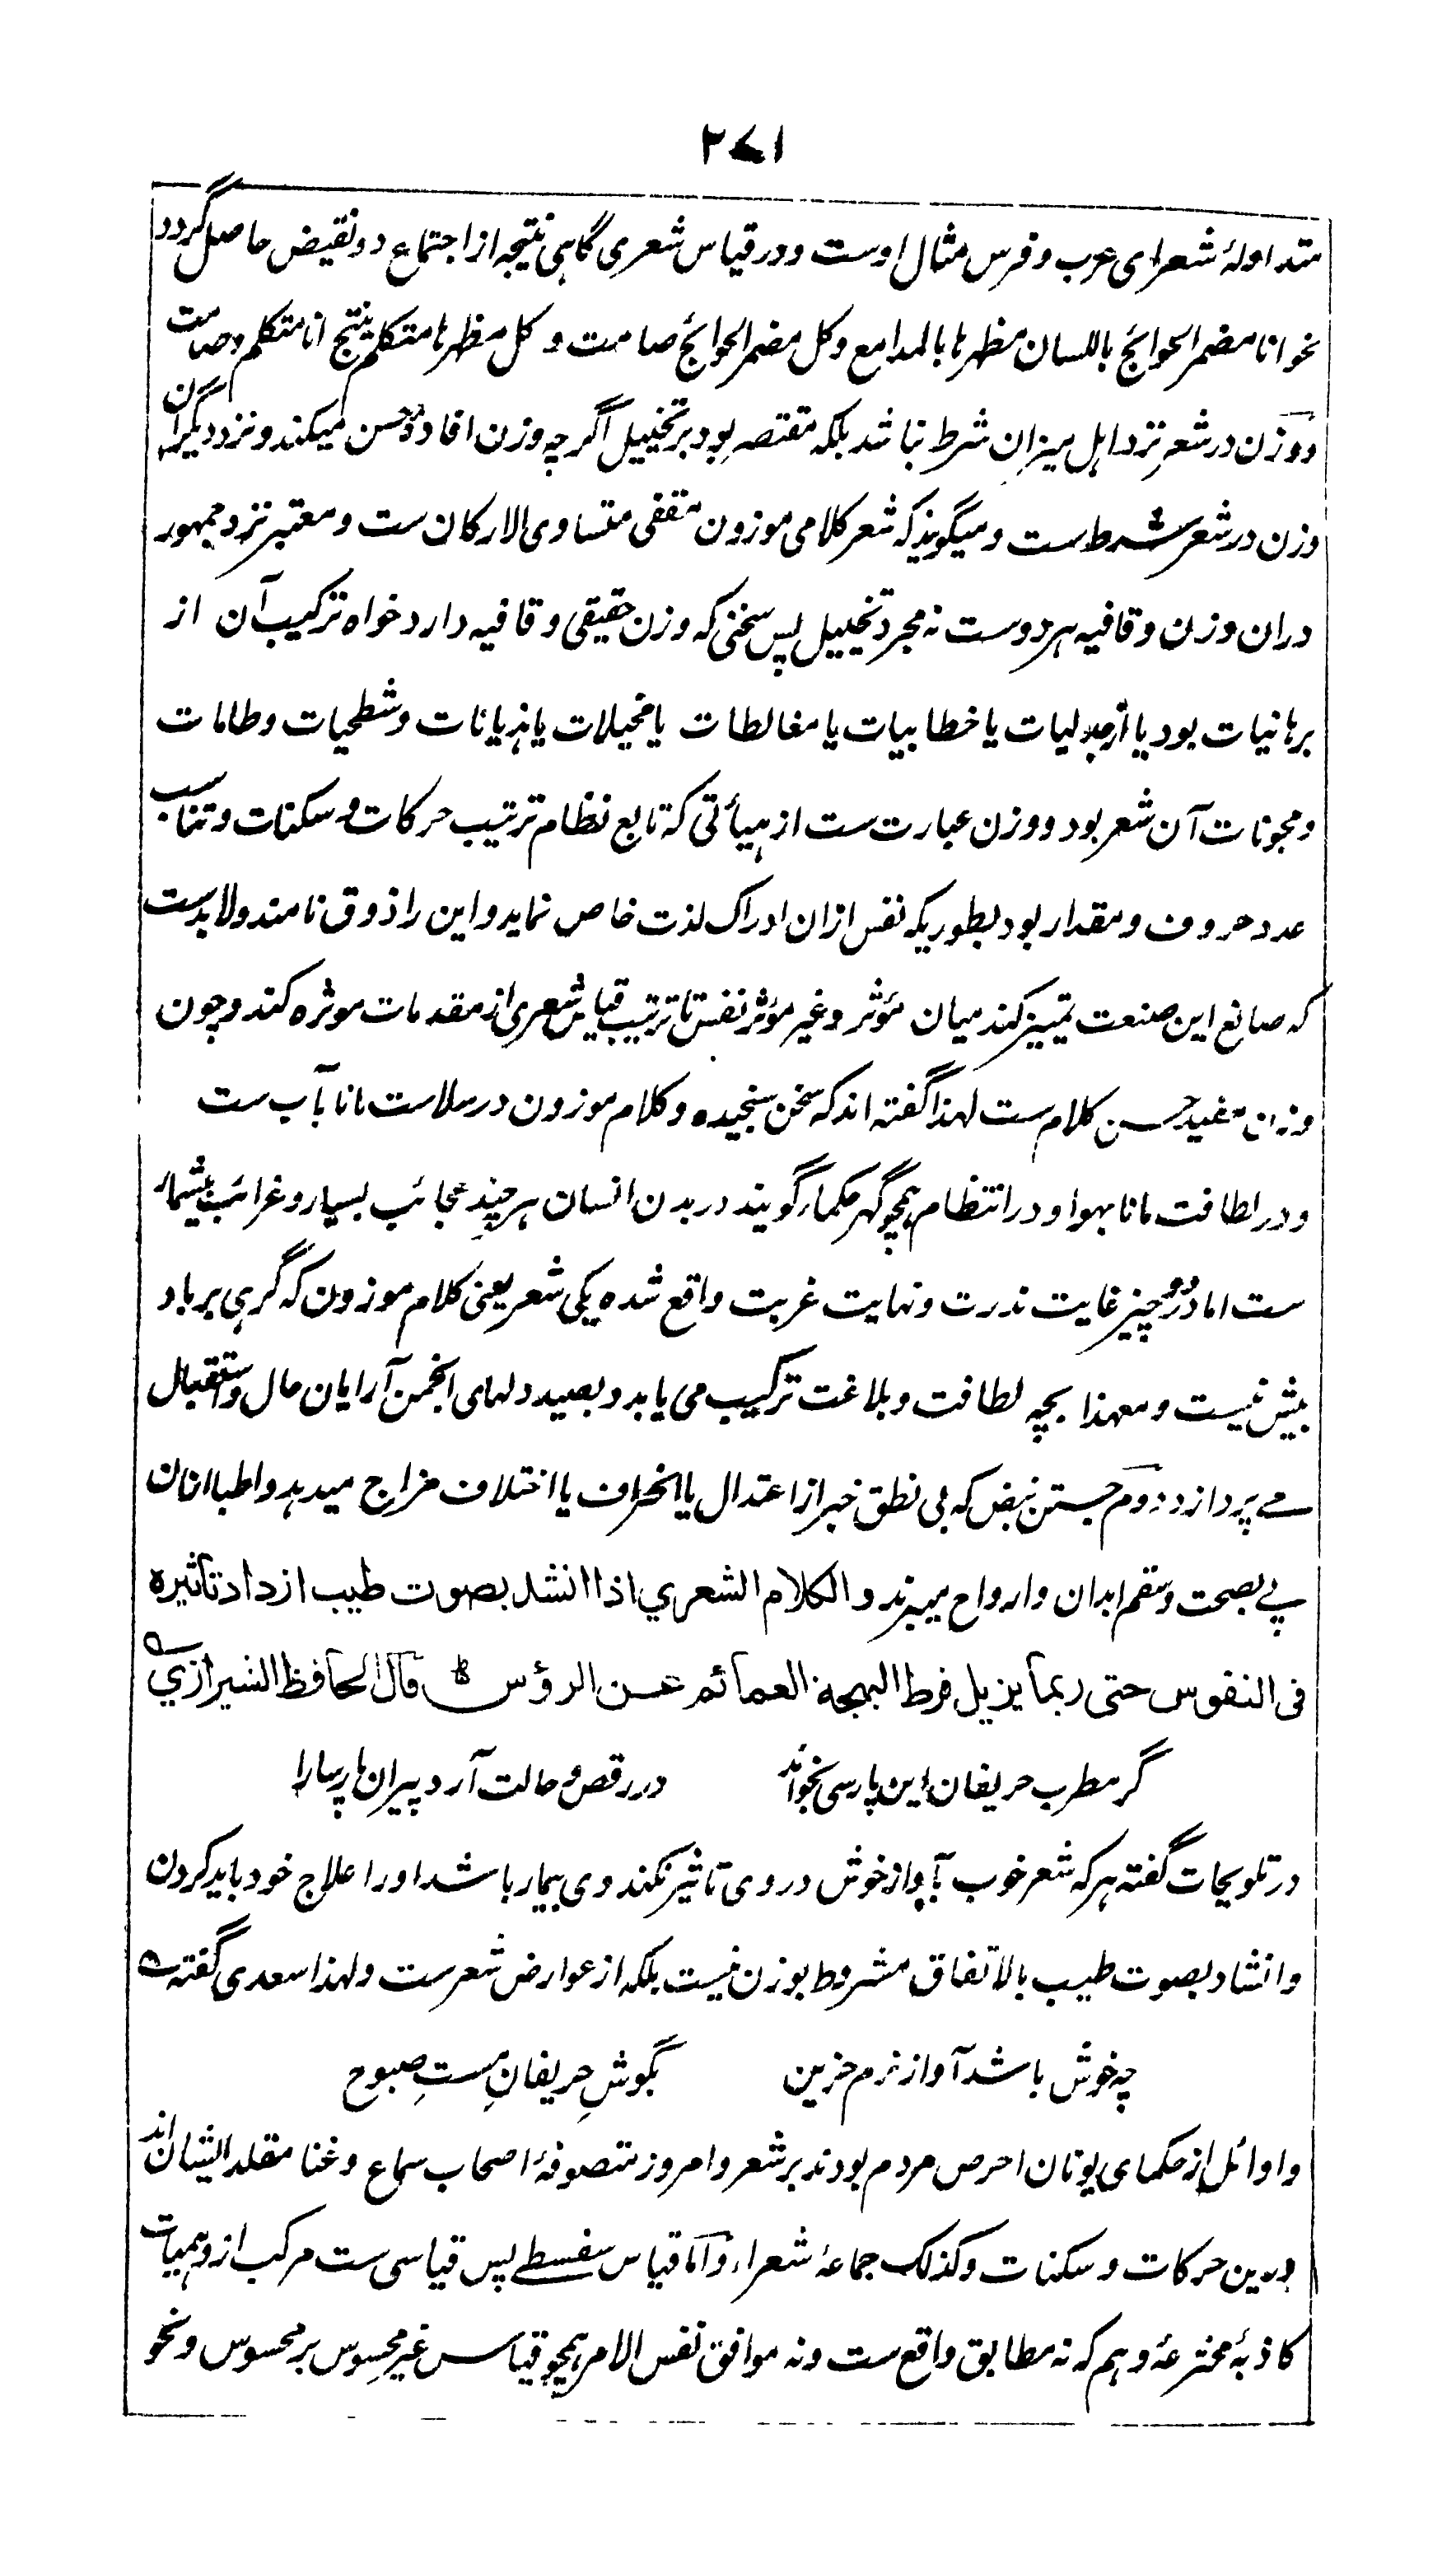 ۲۷۱
متداولۀ شعرای عرب و فرس مثال اوست و در قیاس شعری گاہی نتیجہ از اجتماع دو نقیض حاصل گردد
نحو انا مضمر الحوائج باللسان مظهرها بالمدامع و کل مضمر الحوائج صامت و کل مظهرها متکلم ینتج انا متکلم و صامت
و وزن در شعر نزد اہل میزان شرط نباشد بلکہ مقتصر بود بر تخییل اگرچہ وزن افادۂ حسن میکند و نزد دیگران
وزن در شعر شرط ست و میگویند کہ شعر کلامی موزون مقفی متساوی الارکان ست و معتبر نزد جمہور
دران وزن و قافیہ ہر دوست نہ مجرد تخییل پس سخنی کہ وزن حقیقی و قافیہ دارد خواه ترکیب آن از
برہانیات بود یا از جدلیات یا خطابیات یا مغالطات یا مخیلات یا ہذیانات و شطحیات و طامات
و مجونات آن شعر بود و وزن عبارت ست از ہیأتی کہ تابع نظام ترتیب حرکات و سکنات و تناسب
عدد حروف و مقدار بود بطوریکہ نفس ازان ادراک لذت خاص نماید و این را ذوق نامند و لابدست
کہ صانع این صنعت تمییز کند میان مؤثر و غیر مؤثر نفس تا ترتیب قیاس شعری از مقدمات موثره کند و چون
وزن مفید حسن کلام ست لہذا گفتہ اند کہ سخن سنجیده و کلام موزون در سلاست مانا بآب ست
و در لطافت مانا بہوا و در انتظام ہمچو گہر حکما گویند در بدن انسان ہر چند عجائب بسیار و غرائب بیشمار
ست اما دو چیز غایت ندرت و نہایت غربت واقع شده یکی شعر یعنی کلام موزون کہ گرہی بر باد
بیش نیست و معہذا بچہ لطافت و بلاغت ترکیب می یابد و بصید دلہای انجمن آرایان حال و استقبال
مے پردازد دوم جستن نبض کہ بی نطق خبر از اعتدال یا انحراف یا اختلاف مزاج میدہد و اطبا ازان
پے بصحت و سقم ابدان و ارواح میبرند و الکلام الشعري اذا انشد بصوت طیب ازداد تأثیره
فی النفوس حتی ربما یزیل فرط البهجة العمائم عن الرؤس قال الحافظ الشیرازي ؎
گر مطرب حریفان این پارسی بخواند در رقص و حالت آرد پیران پارسا را
در تلویحات گفتہ ہر کہ شعر خوب بآواز خوش در وی تاثیر نکند وی بیمار باشد او را علاج خود باید کردن
و انشاد بصوت طیب بالاتفاق مشروط بوزن نیست بلکہ از عوارض شعر ست و لہذا سعدی گفتہ ؎
چہ خوش باشد آواز نرم حزین بگوشِ حریفانِ مستِ صبوح
و اوائل از حکمای یونان احرص مردم بودند بر شعر و امروز متصوفۂ اصحاب سماع و غنا مقلد ایشان اند
درین حرکات و سکنات و کذلک جماعۂ شعراء و اما قیاس سفسطے پس قیاسی ست مرکب از وہمیات
کاذبۂ مخترعۂ وہم کہ نہ مطابق واقع ست و نہ موافق نفس الامر ہمچو قیاس غیر محسوس بر محسوس و نحو